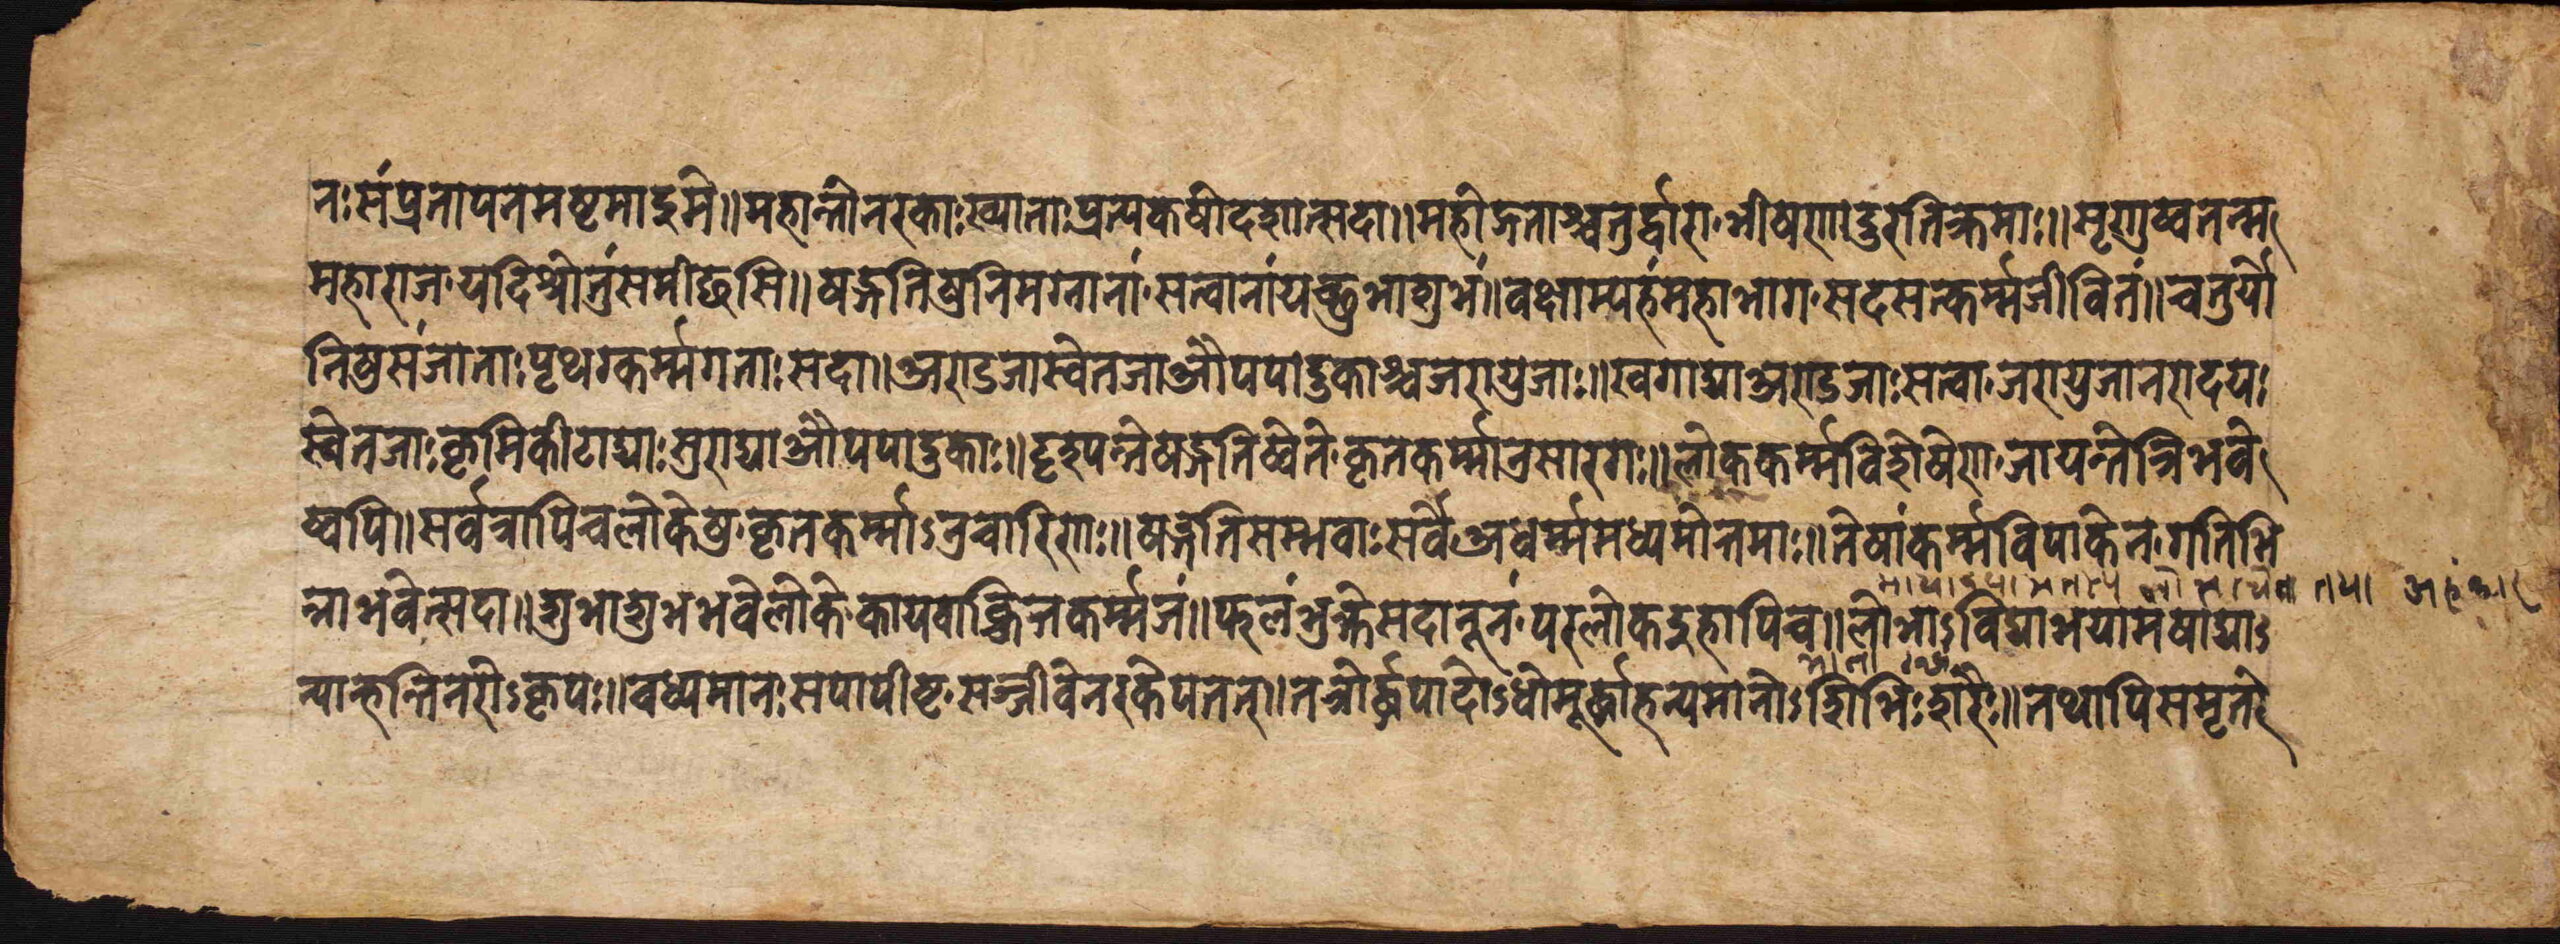 तः संप्रतापनमष्टमा इमे॥ महान्तो नरकाः ख्याताः प्रत्येकषोदशोत्सदा॥ महोग्रताश्चतुर्द्वारा भीषणा दुरतिक्रमाः॥ शृणुष्वैतन्म
महाराज यदि श्रोतुं समीछसि॥ षड्गतिषु निमग्नानां सत्वानां यच्छुभाशुभं॥ वक्षाम्यहं महाभाग सदसत्कर्म्मजीवितं॥ चतुर्यो
निषु संजाताः पृथक्कर्म्मगताः सदा॥ अण्डजा स्वेतजा औपपादुकाश्च जरायुजाः॥ खगाद्या अण्डजाः सत्वा जरायुजा नरादयः
स्वेतजाः कृमिकीटाद्याः सुराद्या औपपादुकाः॥ षड्गतिष्वेते कृतकर्म्मानुसारगः॥ लोककर्म्मविशेषेण जायन्ते त्रिभवे
ष्वपि॥ सर्वत्रापि च लोकेषु कृतकर्म्माऽनुचारिणः॥ षड्गतिसम्भवाः सर्वे अधर्म्ममध्यमोत्तमाः॥ तेषां कर्म्मविपाकेन गतिभि
न्ना भवेत्सदा॥ शुभाशुभभवे लोके कायवाक्चित्तकर्म्मजं॥ फलं भुङ्क्ते सदा नूनं परलोक इहापि च॥ लोभाऽविद्याभयामर्षाद्याऽ
न्यान्हन्ति नरोऽकृपः॥ वध्यमानः स पापीष्ट सञ्जीवे नरके पतेत्॥ तत्रोर्द्ध्वपादोऽधोमूर्द्धा हन्यमानोऽशिभिः शरैः॥ तथापि स मृतो